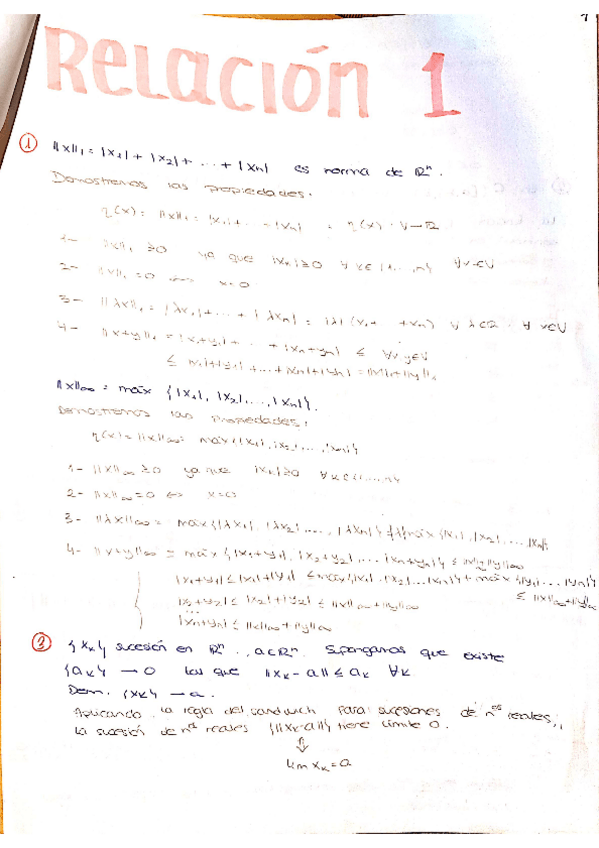 1
Relación 1
① ||x||₁ = |x₁| + |x₂| + ... + |xₙ| es norma de ℝⁿ.
Demostremos las propiedades.
η(x) = ||x||₁ = |x₁| + ... + |xₙ| η(x): V → ℝ
1- ||x||₁ ≥ 0 ya que |xₖ| ≥ 0 ∀ k∈{1,...,n} ∀x∈V
2- ||x||₁ = 0 ⟺ x = 0
3- ||λx||₁ = |λx₁| + ... + |λxₙ| = |λ| (x₁ + ... + xₙ) ∀ λ∈ℝ ∀ x∈V
4- ||x+y||₁ = |x₁+y₁| + ... + |xₙ+yₙ| ≤ ∀x,y∈V
≤ |x₁|+|y₁| + ... + |xₙ|+|yₙ| = ||x||₁+||y||₁
||x||∞ = máx {|x₁|, |x₂|, ..., |xₙ|}.
Demostremos las propiedades:
η(x) = ||x||∞ = máx {|x₁|, |x₂|, ..., |xₙ|}
1- ||x||∞ ≥ 0 ya que |xₖ| ≥ 0 ∀k∈{1,...,n}
2- ||x||∞ = 0 ⟺ x = 0
3- ||λx||∞ = máx {|λx₁|, |λx₂|, ..., |λxₙ|} = |λ| máx {|x₁|, |x₂|, ..., |xₙ|}
4- ||x+y||∞ = máx {|x₁+y₁|, |x₂+y₂|, ..., |xₙ+yₙ|} ≤ ||x||∞+||y||∞
|x₁+y₁| ≤ |x₁|+|y₁| ≤ máx {|x₁|, |x₂|, ..., |xₙ|} + máx {|y₁|, ..., |yₙ|}
≤ ||x||∞+||y||∞
|x₂+y₂| ≤ |x₂|+|y₂| ≤ ||x||∞+||y||∞
...
|xₙ+yₙ| ≤ ||x||∞+||y||∞
③ {xₖ} sucesión en ℝⁿ, a∈ℝⁿ. Supongamos que existe
{aₖ} → 0 tal que ||xₖ - a|| ≤ aₖ ∀k
Dem. {xₖ} → a.
Aplicando la regla del sandwich para sucesiones de nᵒˢ reales,
la sucesión de nº reales {||xₖ-a||} tiene límite 0.
⇕
lim xₖ = a